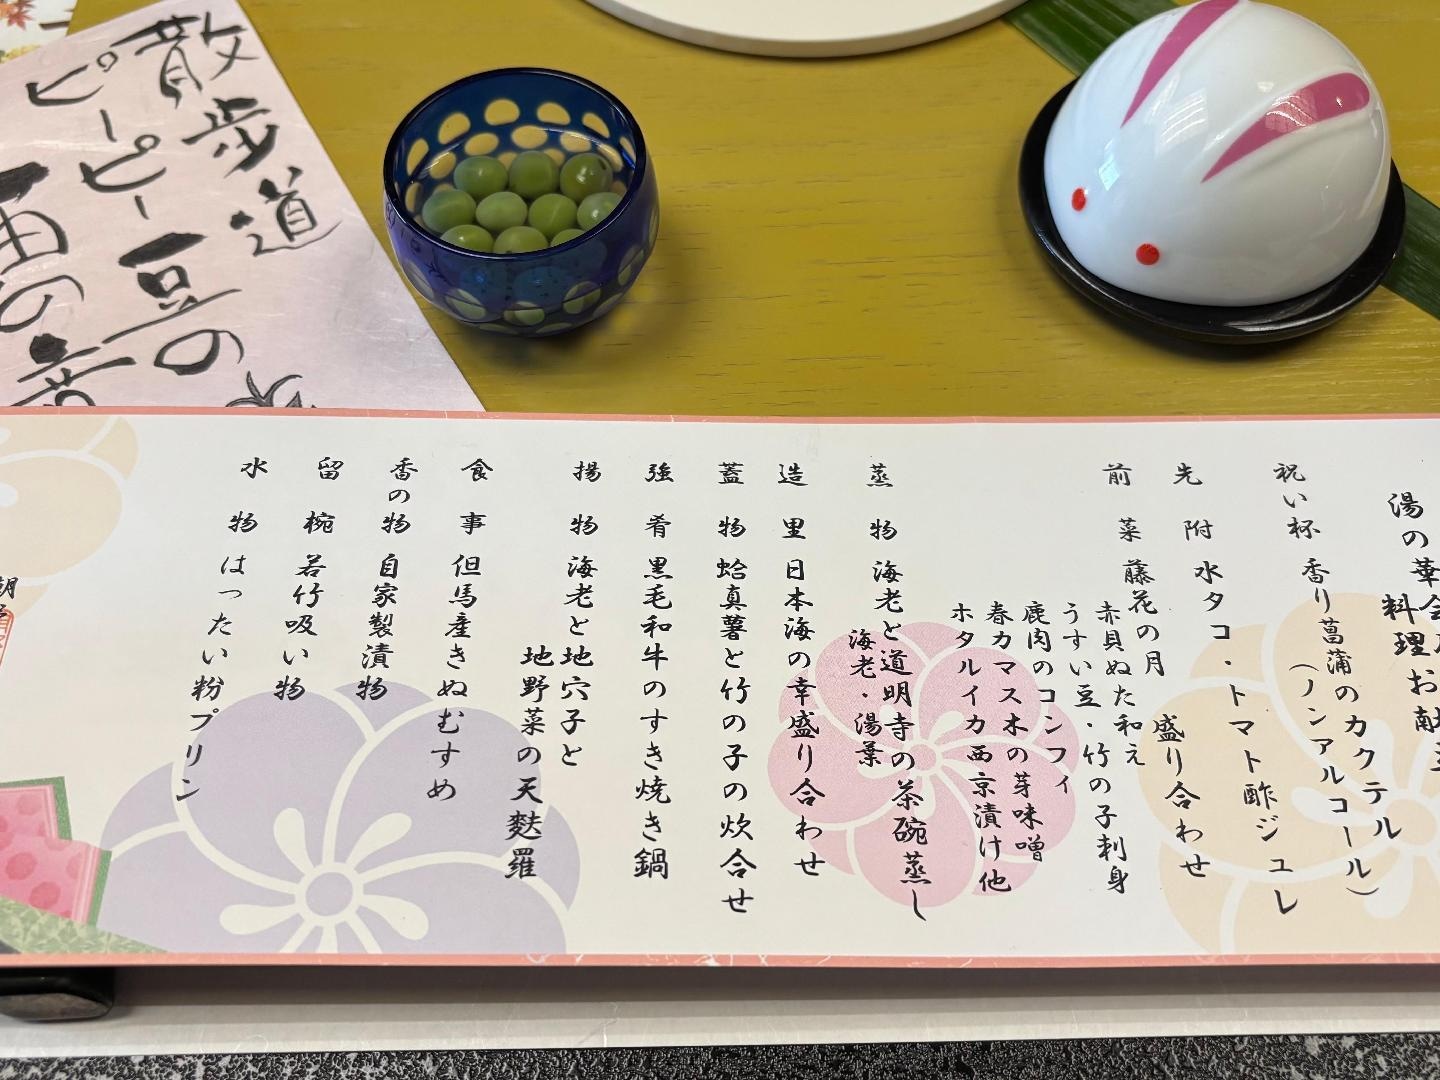 散歩道
ピーピー豆の
笛の音
湯の華会席
料理お献立
祝い杯 香り菖蒲のカクテル
(ノンアルコール)
先附 水タコ・トマト酢ジュレ
前菜 藤花の月 盛り合わせ
赤貝ぬた和え
うすい豆・竹の子刺身
鹿肉のコンフィ
春カマス木の芽味噌
ホタルイカ西京漬け他
蒸物 海老と道明寺の茶碗蒸し
海老・湯葉
造里 日本海の幸盛り合わせ
蓋物 蛤真薯と竹の子の炊合せ
強肴 黒毛和牛のすき焼き鍋
揚物 海老と地穴子と
地野菜の天麩羅
食事 但馬産きぬむすめ
香の物 自家製漬物
留椀 若竹吸い物
水物 はったい粉プリン